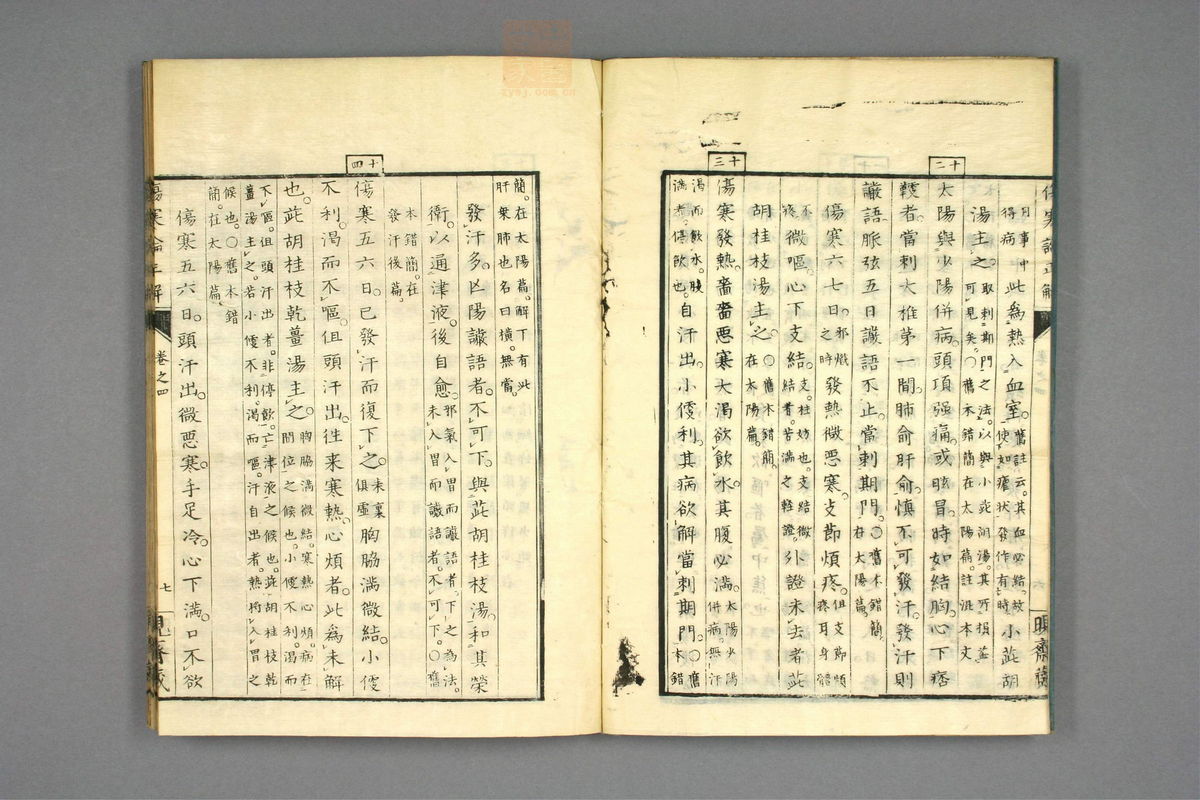 十二
十三
月事中
得病
此為熱入血室。
舊註云。其血必結。故
使如瘧狀。發作有時
小茈胡
湯主之。
取刺期門之法。以與小茈胡湯。其所損益
可見矣。○舊本錯簡在太陽篇。註混本文
太陽與少陽併病。頭項强痛。或眩冒。時如結胸。心下痞
鞕者。當刺大椎第一間肺俞肝俞。慎不可發汗。發汗則
讝語。脈弦。五日讝語不止。當刺期門。
○舊本錯簡。
在太陽篇
傷寒六七日。
邪熾
之時
發熱微惡寒。支節煩疼。
但支節煩
疼耳身體
不
疼
微嘔。心下支結。
支。柱妨也。支結微
結者。苦滿之輕證。
外證未去者。茈
胡桂枝湯主之。
○舊本錯簡。
在太陽篇。
傷寒發熱。嗇嗇惡寒。大渴欲飲水。其腹必滿。
太陽少陽
併病。無汗
渴而飲水。腹
滿者。停飲也。
自汗出。小便利。其病欲解。當刺期門。
○舊
本錯
十四
簡。在太陽篇。解丁有此
肝乗肺也。名曰橫。無當。
發汗多。亡陽讝語者。不可下。與茈胡桂枝湯。和其榮
衛。以通津液。後自愈。
邪氣入胃而讝語者。下之為法。
未入胃而讝語者。不可下。○舊
本錯簡。在
發汗後篇。
傷寒五六日。已發汗而復下之。
未裏
俱虛
胸脇滿微結。小便
不利。渴而不嘔。但頭汗出。往来寒熱。心煩者。此為未解
也。茈胡桂枝乾薑湯主之。
胸脇滿微結。寒熱心煩。病在
間位之候也。小便不利。渴而
不嘔。但頭汗出者。非停飲。亡津液之候也。茈胡桂枝乾
薑湯主之。若小便不利。渴而嘔。汗自出者。熱將入胃之
候也。○舊本錯
簡。在太陽篇。
傷寒五六日。頭汗出。微惡寒。手足冷。心下滿。口不欲
傷寒論正解
卷之四
七